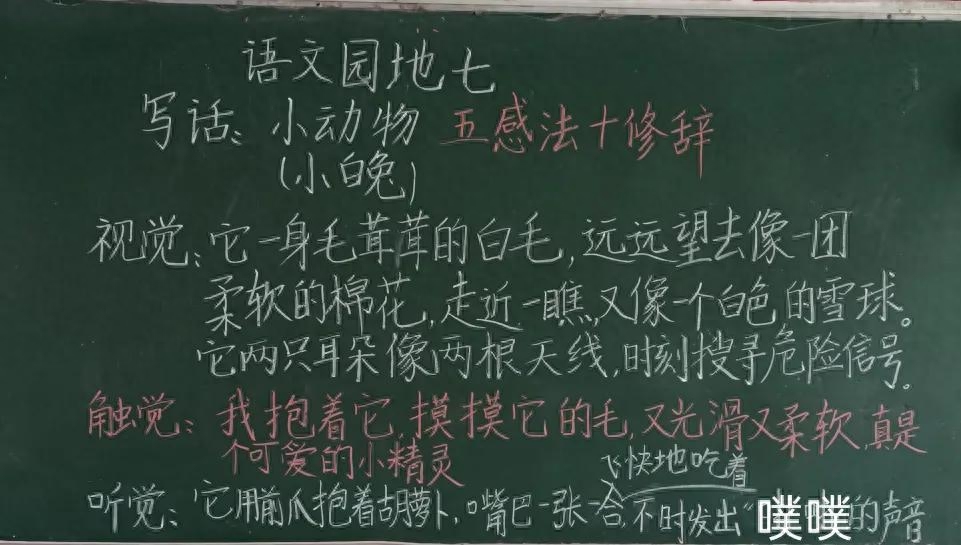 语文园地七
写话:小动物 五感法+修辞
(小白兔)
视觉:它一身毛茸茸的白毛,远远望去像一团
柔软的棉花,走近一瞧,又像一个白色的雪球。
它两只耳朵像两根天线,时刻搜寻危险信号。
触觉:我抱着它,摸摸它的毛,又光滑又柔软,真是
个可爱的小精灵
飞快地吃着
听觉:它用前爪抱着胡萝卜,嘴巴一张一合,不时发出“噗噗的声音